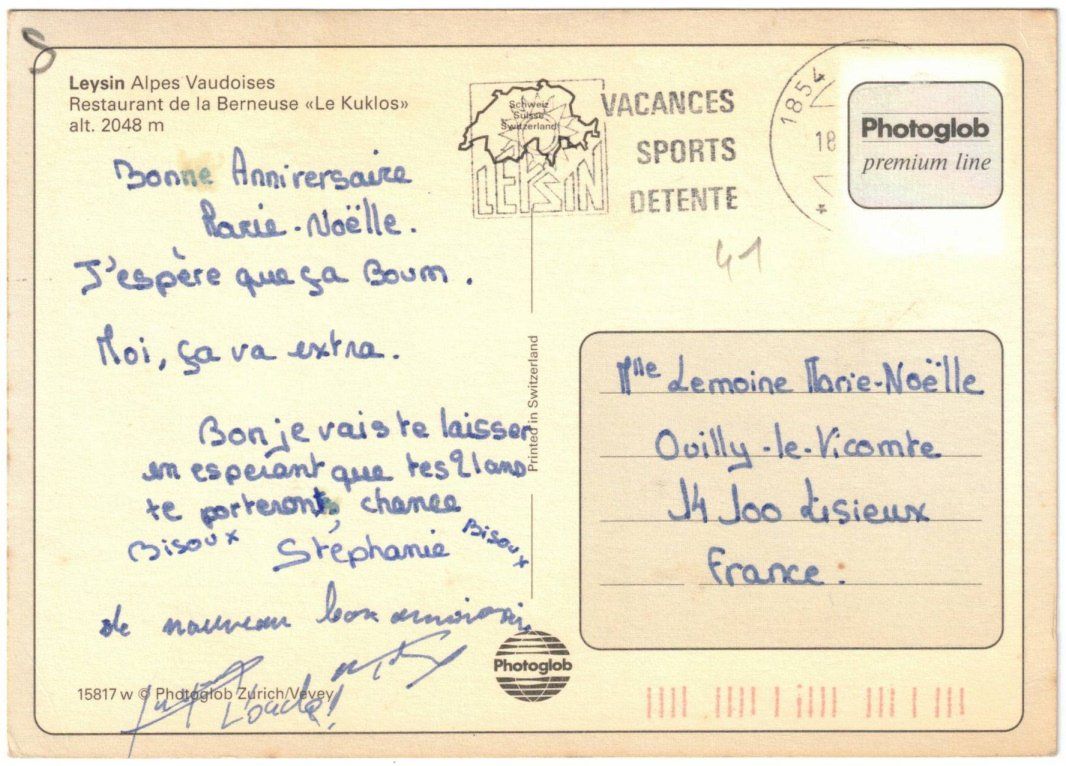 Leysin Alpes Vaudoises
Restaurant de la Berneuse «Le Kuklos»
alt. 2048 m
Schweiz
Suisse
Switzerland
LEYSIN
VACANCES
SPORTS
DETENTE
1854
18
Photoglob
premium line
41
Bonne Anniversaire
Marie-Noëlle.
J'espère que ça Boum.
Moi, ça va extra.
Bon je vais te laisser
en esperant que tes 21 ans
te porteront chance
Bisoux Stéphanie Bisoux
de nouveau bon
L'oncle!
Printed in Switzerland
Mlle Lemoine Marie-Noëlle
Ouilly-le-Vicomte
14100 Lisieux
France.
Photoglob
15817 w © Photoglob Zürich/Vevey